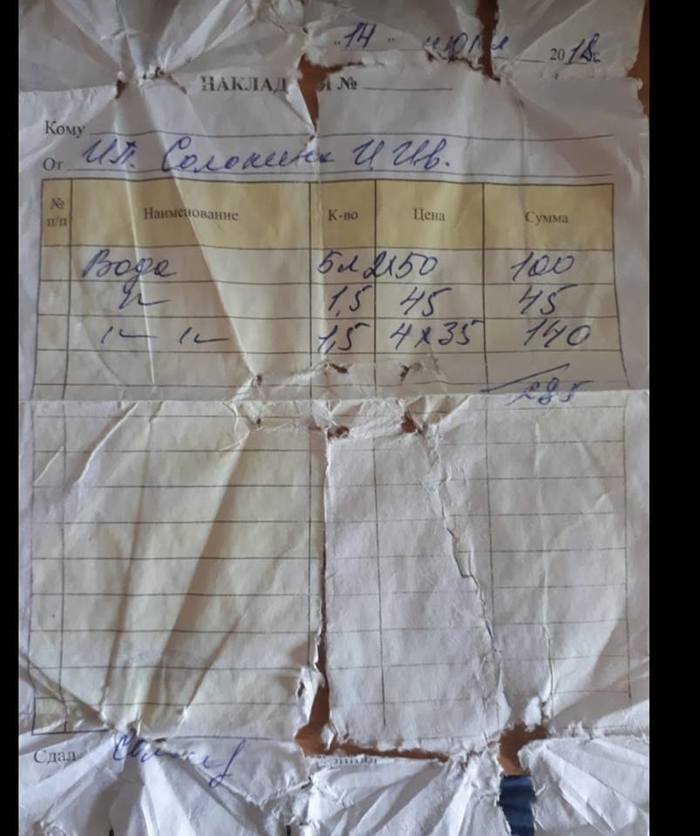 "14" июля 2018г.
НАКЛАД Я №
Кому
От ИП. Солонина И. Ив.
№ п/п Наименование К-во Цена Сумма
Вода 5л 2х50 100
1,5 45 45
1,5 4х35 140
285
Сдал